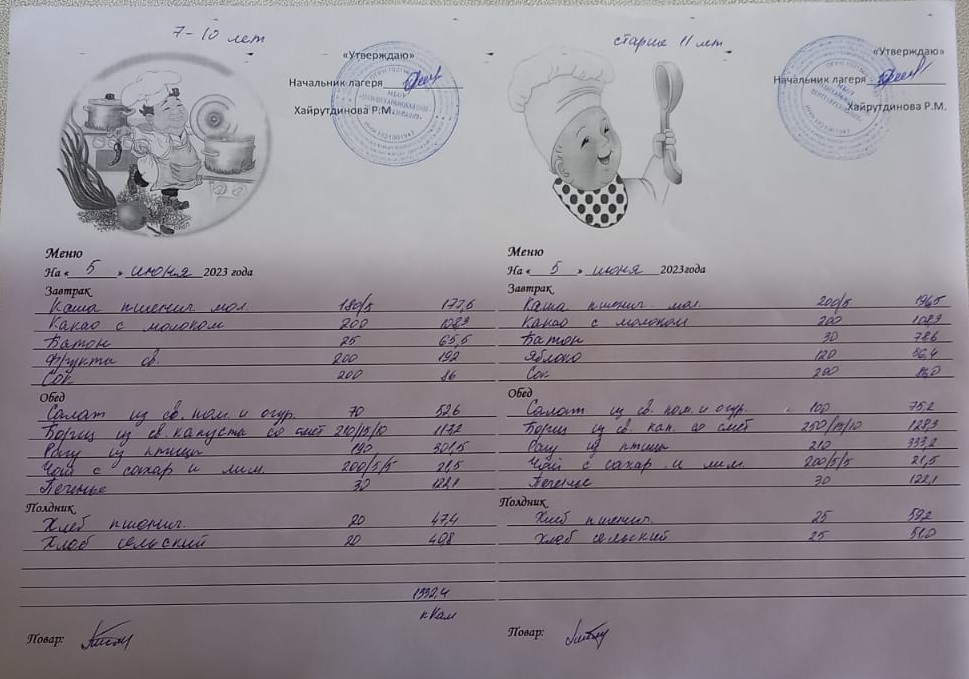 7-10 лет
«Утверждаю»
Начальник лагеря
Хайрутдинова Р.М.
Меню
На « 5 » июня 2023 года
Завтрак
Каша пшенич мол. 180/5 177,6
Какао с молоком 200 108,9
Батон 25 65,5
Фрукты св. 200 192
Сок 200 86
Обед
Салат из св. пом. и огур. 70 52,6
Борщ из св. капусты со смет 210/15/10 117,2
Рагу из птицы 190 301,5
Чай с сахар и лим. 200/5/5 21,5
Печенье 30 122,1
Полдник
Хлеб пшенич. 20 47,4
Хлеб сельский 20 40,8
1332,4
кКал
Повар:
старше 11 лет
«Утверждаю»
Начальник лагеря
Хайрутдинова Р.М.
Меню
На « 5 » июня 2023года
Завтрак
Каша пшенич. мол. 200/5 196,5
Какао с молоком 200 108,9
Батон 30 78,6
Яблоко 120 56,4
Сок 200 86,0
Обед
Салат из св. пом. и огур. 100 75,2
Борщ из св. кап. со смет 250/15/10 128,3
Рагу из птицы 210 333,2
Чай с сахар и лим. 200/5/5 21,5
Печенье 30 122,1
Полдник
Хлеб пшенич. 25 59,2
Хлеб сельский 25 51,0
Повар: